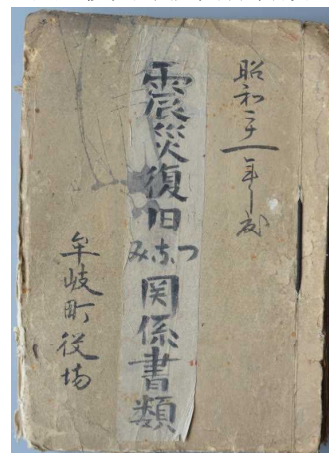 昭和二十一年度
震災復旧つなみ関係書類
牟岐町役場